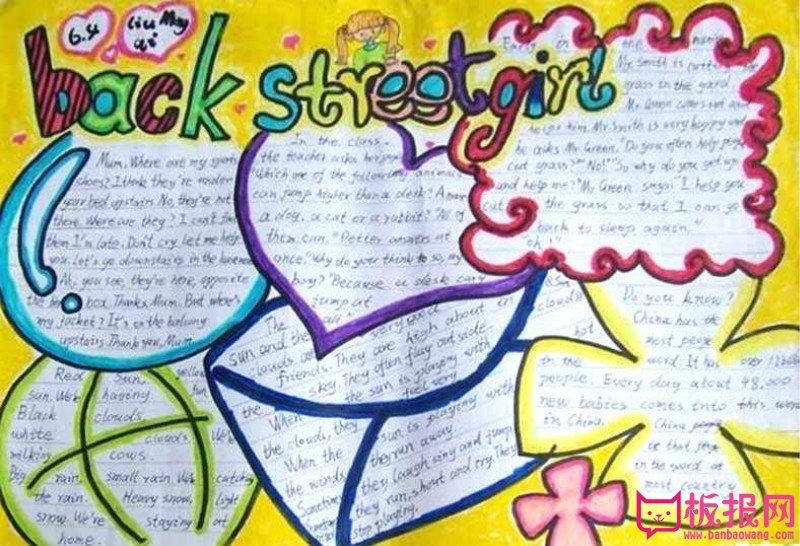 6.4
Liu May
back street girl
Mum, Where are my sports
shoes? I think they're under
your bed upstairs No, they're not
there. Where are they? I can't find
them I'm late. Don't cry. Let me help
you. Let's go downstairs in the
Ah, you see, they're here, opposite
the box. Thanks, Mum. But where's
my jacket? It's on the balcony
upstairs Thank you, Mum
In the class,
the teacher asks boys
"Which one of the following animals
can jump higher than a desk? A
a dog, a cat or a rabbit? "All of
them can, "Petter answers at
once. "Why do your think so, my
boy?" "Because a desk can't
jump at
all."
Early in the morning
Mr. Smith is cutting the
grass in the yard.
Mr. Green comes out and
helps him. Mr. Smith is very happy and
he asks Mr. Green, "Do you often help people
cut grass?" "No!" "So why do you get up
and help me?" Mr Green says: "I help you
cut the grass so that I can go
back to sleep again."
"oh!"
The very good
sun and the in
clouds are high about
friends. They are
the sky. They often play outside
When the sun is playing with
the clouds, they feel very
When the sun is playing with
the winds, they run away
they laugh sing and jump
they run, shout and cry. They
stop playing.
sun
clouds
hot
Do you know?
China has the
most people
in the word. It has over 12
people. Every day about 48,000
new babies comes into this word
in China. China people
is that people
in the word at
most country
Red Sun, yellow
sun. We're having fun
Black clouds,
white clouds. We're
milking cows.
Big rain, small rain We're catching
the rain. Heavy snow, light
snow. We're staying at
home.
板报网
www.banbaowang.com